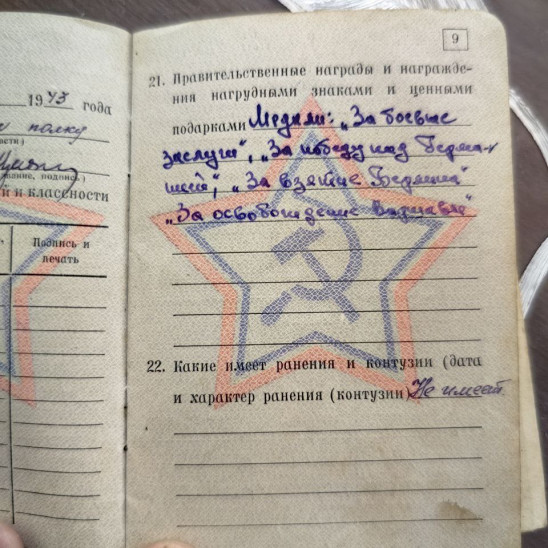 19 43 года
полку
й и классности
Подпись и
печать
9
21. Правительственные награды и награжде-
ния нагрудными знаками и ценными
подарками Медали: „За боевые
заслуги", „За победу над Герма-
нией", „За взятие Берлина"
„За освобождение Варшавы"
22. Какие имеет ранения и контузии (дата
и характер ранения (контузии) Не имеет